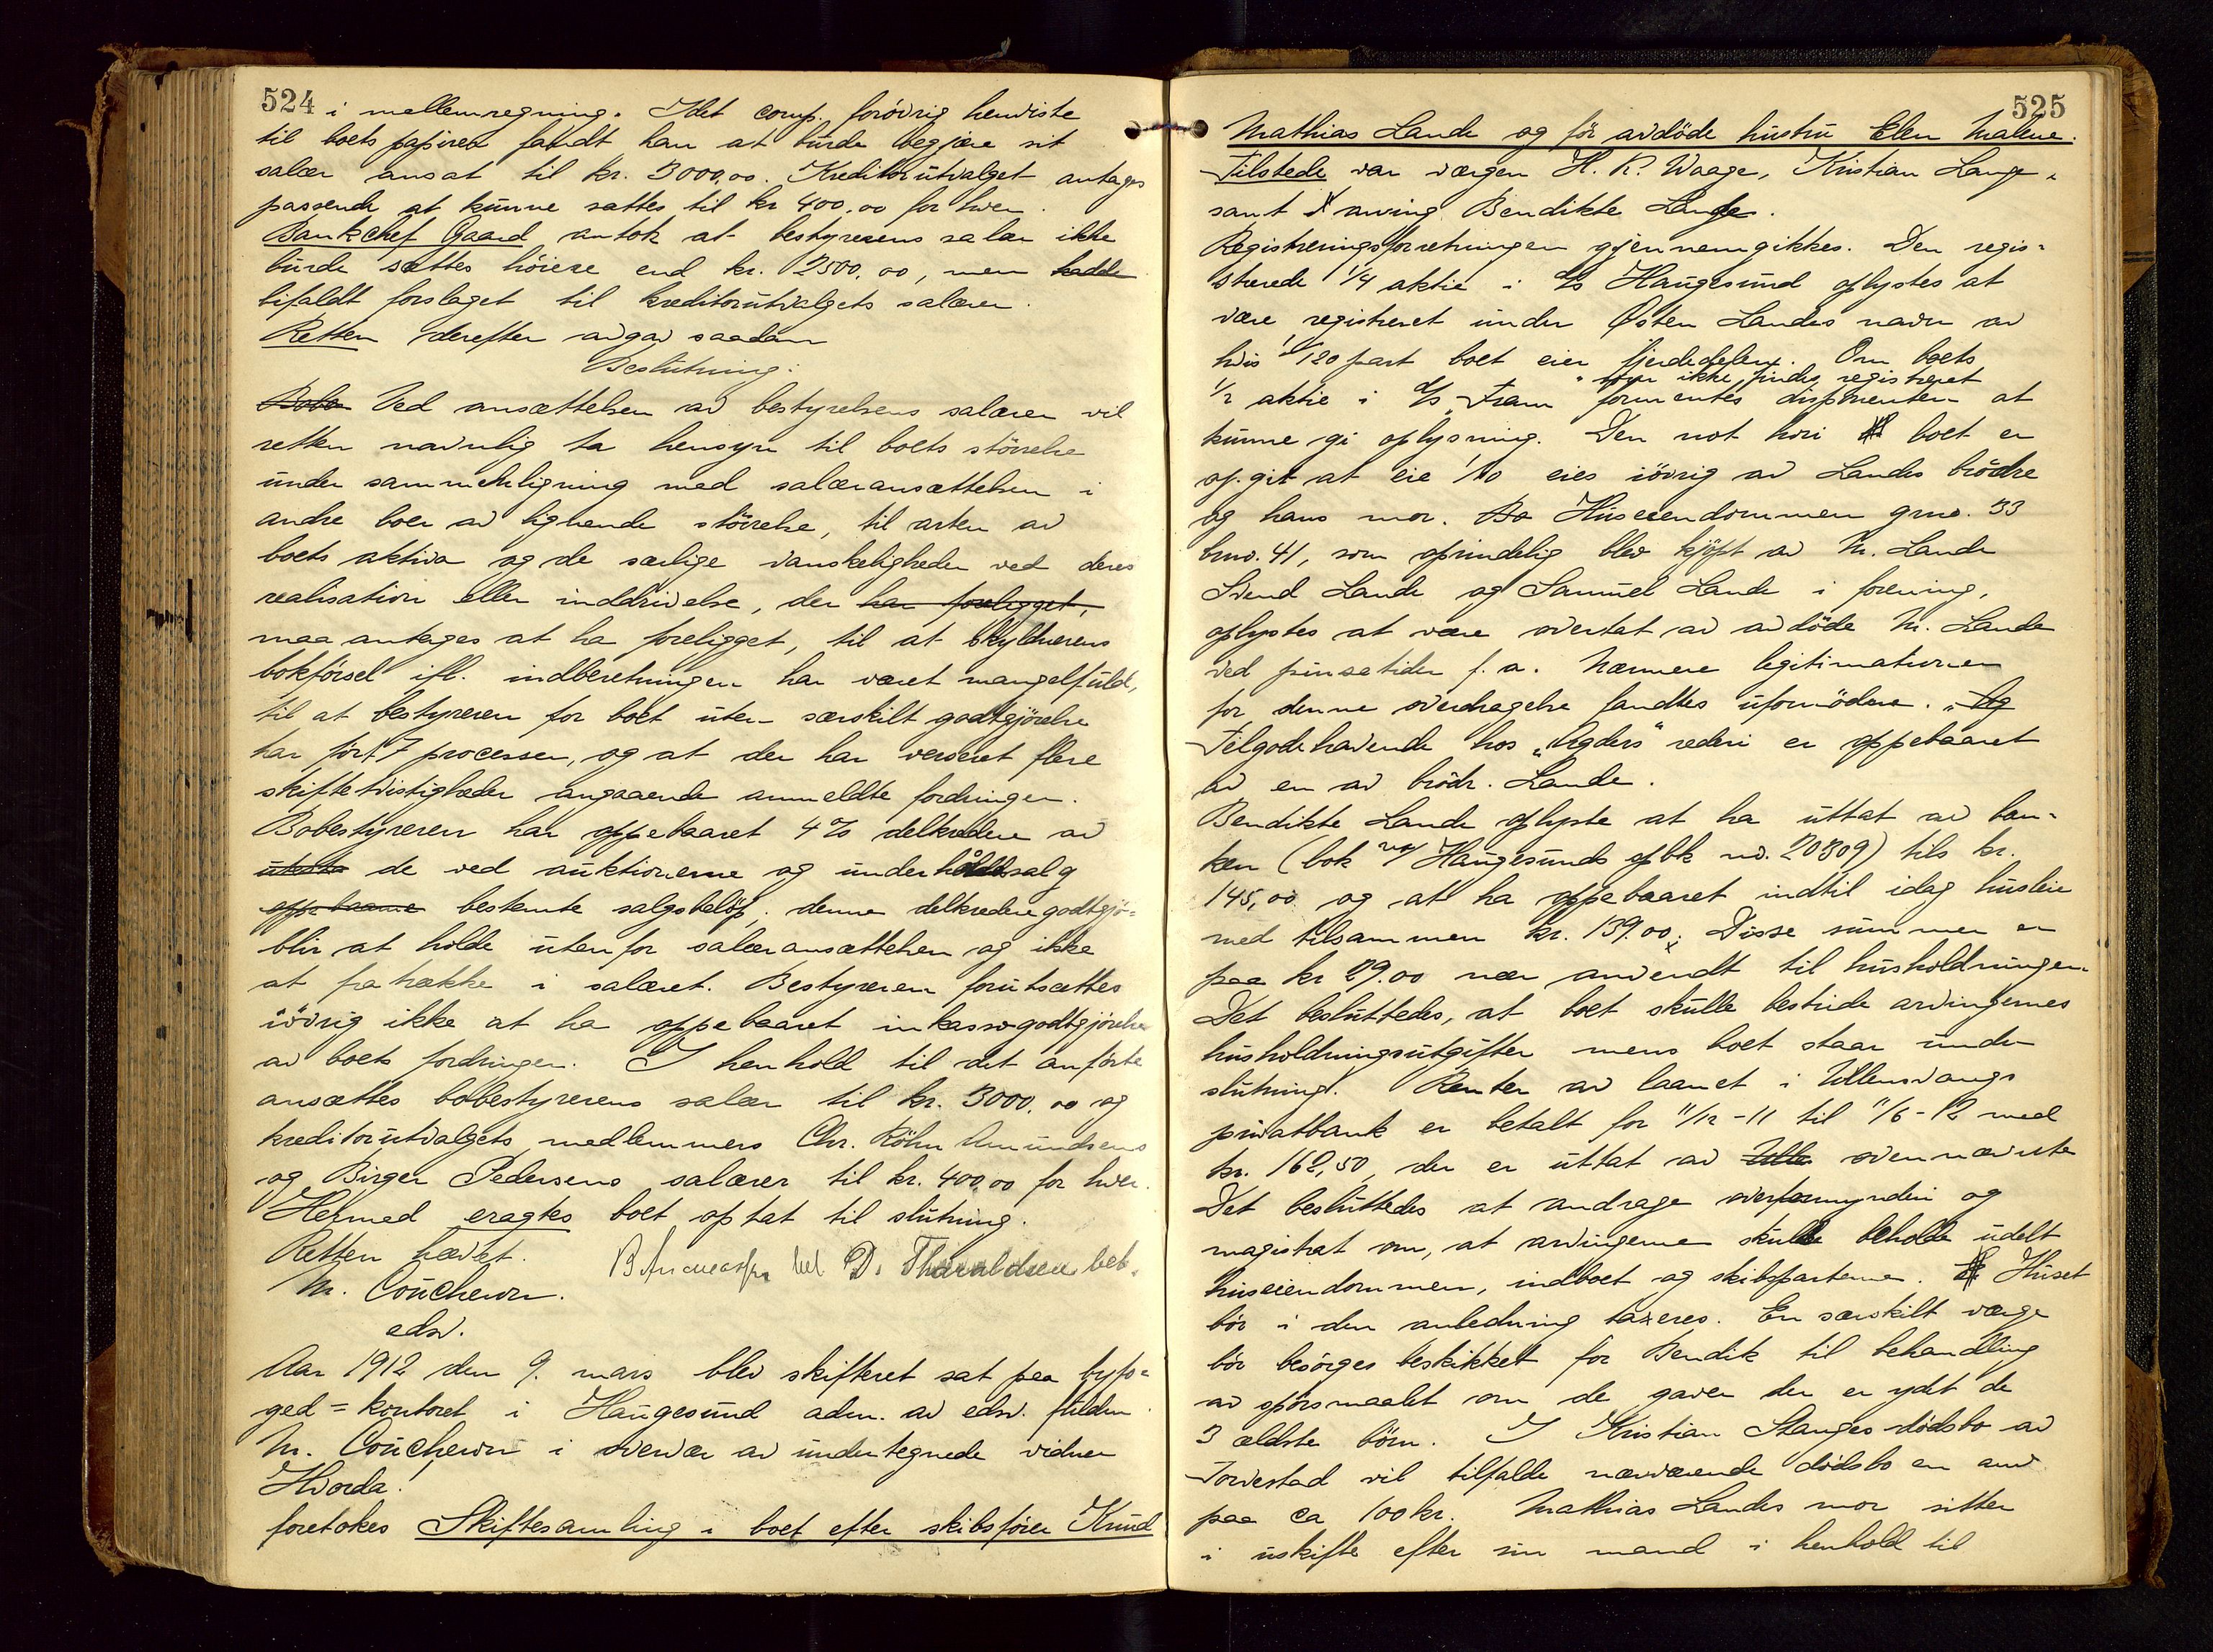 524
i mellemregning. Idet comp. forøvrig henviste
til boets papirer fandt han at burde begjære sit
salær ansat til kr. 3000,00. Kreditorutvalget antages
passende at kunne sættes til kr 400,00 for hver.
Bankchef Gaard antok at bestyrerens salær ikke
burde sættes höiere end kr. 2500,00, men hadde
bifaldt forslaget til kreditorutvalgets salærer.
Retten derefter avgav saadan
Beslutning:
Bobe Ved ansættelsen av bestyrelsens salærer vil
retten navnlig ta hensyn til boets störrelse
under sammenligning med salæransættelsen i
andre boer av lignende störrelse, til arten av
boets aktiva og de særlige vanskeligheder ved deres
realisation eller inddrivelse, der har foreligget,
maa antages at ha foreligget, til at skyldnerens
bokförsel ifl. indberetningen har været mangelfuld,
til at bestyreren for boet uten særskilt godtgjörelse
har fört 7 processer, og at der har verseret flere
skiftetvistigheder angaaende anmeldte fordringer.
Bobestyreren har oppebaaret 4% delkredere av
de ved auktionerne og underhåndssalg
oppebaarne bestemte salgsbelöp; denne delkrederegodtgjö-
blir at holde utenfor salæransættelsen og ikke
at fratrække i salæret. Bestyreren forutsættes
iövrig ikke at ha oppebaaret inkassogodtgjörelse
av boets fordringer. I henhold til det anförte
ansættes bobestyrerens salær til kr. 3000,00 og
kreditorutvalgets medlemmers Chr. Röhn Amundsens
og Birger Pedersens salærer til kr. 400,00 for hver.
Hermed eragtes boet optat til slutning.
Retten hævet.
D. Tharaldsen beb.
M. Coucheron.
edsv.
Aar 1912 den 9. mars blev skifteret sat paa byfo-
ged=kontoret i Haugesund adm. av edsv. fuldm.
M. Coucheron i overvær av undertegnede vidner
Hvorda!
foretokes Skiftesamling i boet efter skibsfører Knud
525
Mathias Lande og før avdöde hustru Elen Malene.
Tilstede var værgen H. R. Waage, Kristian Lange,
samt arving Bendikte Lande.
Registreringsforretningen gjennemgikkes. Den regis-
trerede 1/4 aktie i D/s Haugesund oplystes at
være registreret under Østen Landes navn av
hvis 1/120 part boet eier fjerdedelen. Om boets
som ikke findes registreret
1/2 aktie i D/s "Fram" formentes disponenten at
kunne gi oplysning. Den not hvori boet er
opgit at eie 1/10 eies iövrig av Landes brödre
og hans mor. Bo Huseiendommen grno. 33
brno. 41, som oprindelig blev kjöpt av M. Lande
Svend Lande og Samuel Lande i forening,
oplystes at være overtat av avdöde M. Lande
ved pinsetider f. a. Nærmere legitimationer
for denne overdragelse fandtes ufornödne. "Ag
Tilgodehavende hos "Agders" rederi er oppebaaret
av en av brödr. Lande.
Bendikte Lande oplyste at ha uttat av ban-
ken (bok Haugesunds opbk no. 20309) tils kr.
145,00 og at ha oppebaaret indtil idag husleie
med tilsammen kr. 139.00; Disse summer er
paa kr 29.00 nær anvendt til husholdningen.
Det besluttedes, at boet skulle bestride arvingernes
husholdningsutgifter mens boet staar under
slutning. Renter av laanet i Ullensvangs
privatbank er betalt for 11/12-11 til 11/6-12 med
kr. 162,50, der er uttat av Ulle ovennævnte
Det besluttedes at andrage overformynderi og
magistrat om, at arvingerne skulle beholde udelt
huseiendommen, indboet og skibsparterne. Huset
bör i den anledning taxeres. En særskilt værge
bör besörges beskikket for Bendik til behandling
av spörsmaalet om de gaver der er ydt de
3 ældste börn. I Kristian Stanges dödsbo av
Torvestad vil tilfalde nærværende dödsbo en arv
paa ca 100 kr. Mathias Landes mor sitter
i uskifte efter sin mand i henhold til